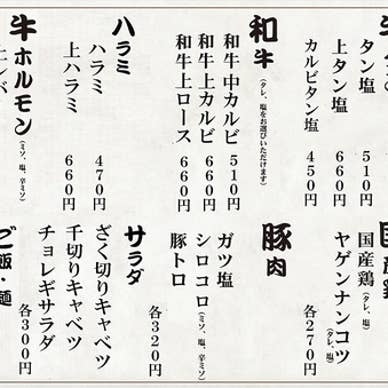 タン塩 510円
上タン塩 660円
カルビタン塩 450円
和牛（タレ、塩をお選びいただけます）
和牛中カルビ 510円
和牛上カルビ 660円
和牛上ロース 660円
ハラミ
ハラミ 470円
上ハラミ 660円
牛ホルモン（ミソ、塩、辛ミソ）
国産鶏
国産鶏（タレ、塩）
ヤゲンナンコツ（タレ、塩）
各270円
豚肉
ガツ塩
シロコロ（ミソ、塩、辛ミソ）
豚トロ
各320円
サラダ
ざく切りキャベツ
千切りキャベツ
チョレギサラダ
各300円
ご飯・麺